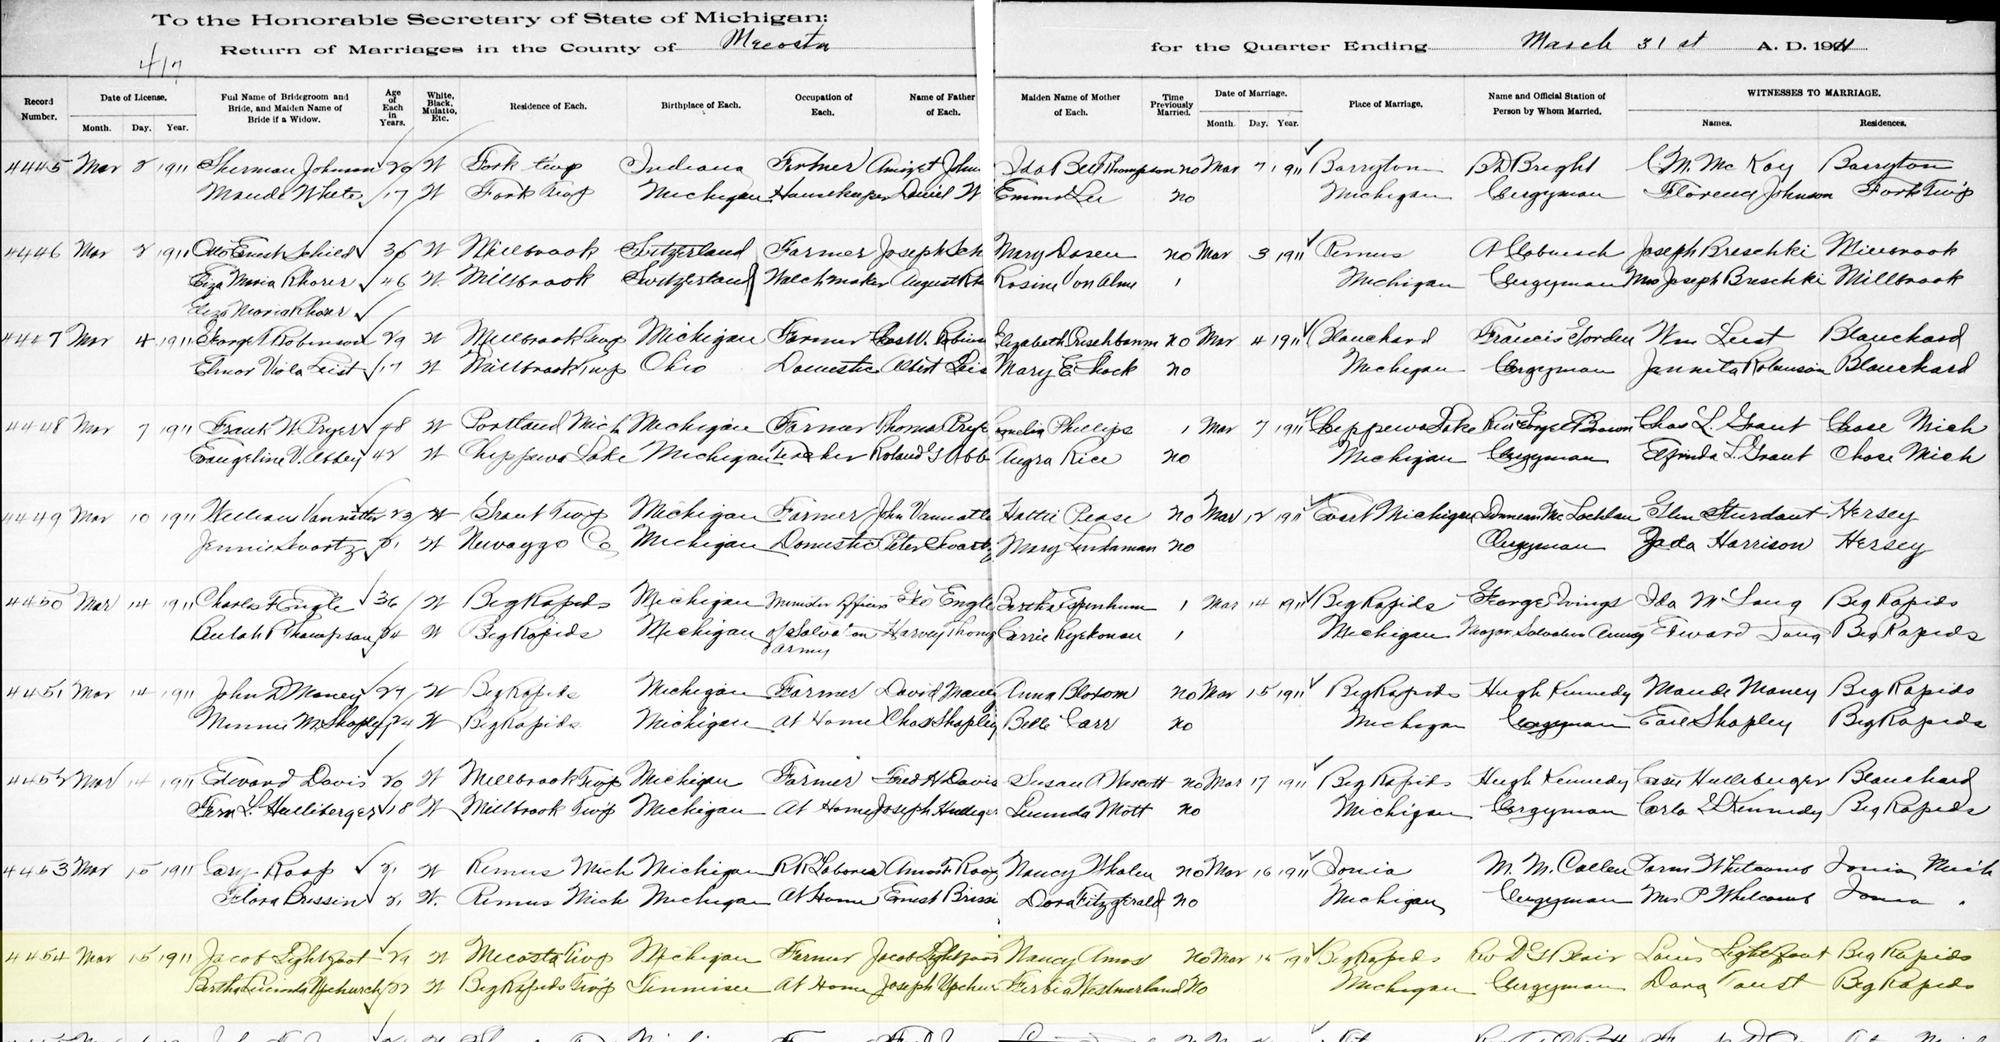 To the Honorable Secretary of State of Michigan:
Return of Marriages in the County of Mecosta for the Quarter Ending March 31st A. D. 1911
417
Record Number. Date of License. Month. Day. Year. Full Name of Bridegroom and Bride, and Maiden Name of Bride if a Widow. Age of Each in Years. White, Black, Mulatto, Etc. Residence of Each. Birthplace of Each. Occupation of Each. Name of Father of Each. Maiden Name of Mother of Each. Time Previously Married. Date of Marriage. Month. Day. Year. Place of Marriage. Name and Official Station of Person by Whom Married. WITNESSES TO MARRIAGE. Names. Residences.
4445 Mar 2 1911 Sherman Johnson 29 W Fork twp Indiana Farmer John Ida Bell Thompson no Mar 7 1911 Barryton Bright C. M. McKay Barryton
Maude White 17 W Fork Twp Michigan Housekeeper Daniel W Emma Lee no Michigan Clergyman Florence Johnson Fork Twp
4446 Mar 2 1911 Otto Ernest Schield 36 W Millbrook Switzerland Farmer Joseph Sch Mary Dosen no Mar 3 1911 Remus Joseph Breschki Millbrook
Eliza Maria Rhorer 46 W Millbrook Switzerland Watchmaker August Rosine Von Alme 1 Michigan Clergyman Mrs Joseph Breschki Millbrook
Eliza Maria Rhorer
4447 Mar 4 1911 George Robinson 29 W Millbrook Twp Michigan Farmer Chas W. Robins Elizabeth no Mar 4 1911 Blanchard Francis Jorden Wm Leist Blanchard
Elnor Viola Leist 17 W Millbrook Twp Ohio Domestic Albert Leis Mary E Shock no Michigan Clergyman Jannita Robinson Blanchard
4448 Mar 7 1911 Frank W. Pryer 48 W Portland Mich Michigan Farmer Thomas Prye Cornelia Phillips 1 Mar 7 1911 Chippewa Lake Rev George Brown Chas L. Grant Chase Mich
Evangeline V. Abbey 42 W Chippewa Lake Michigan Teacher Roland G Abb Rice no Michigan Clergyman L. Grant Chase Mich
4449 Mar 10 1911 William Vannatter 23 W Grant Twp Michigan Farmer John Vannatte Hattie Pease no Mar 12 1911 Evart Michigan Duncan McLachlan Glen Sturdaut Hersey
Jennie Swartz W Newaygo Co Michigan Domestic Peter Swartz Mary Lindaman no Clergyman Zada Harrison Hersey
4450 Mar 14 1911 Charles F Engle 36 W Big Rapids Michigan Minister Officer Geo Engle Bertha 1 Mar 14 1911 Big Rapids George Ivings Ida M Long Big Rapids
Beulah R Thompson W Big Rapids Michigan of Salvation Harvey Thomp Carrie 1 Michigan Major Salvation Army Edward Long Big Rapids
Army
4451 Mar 14 1911 John D Maney 27 W Big Rapids Michigan Farmer David Maney Anna Bloxom no Mar 15 1911 Big Rapids Hugh Kennedy Maude Maney Big Rapids
Minnie M. Shapley 24 W Big Rapids Michigan At Home Chas Shapley Belle Carr no Michigan Clergyman Earl Shapley Big Rapids
4452 Mar 14 1911 Edward Davis 20 W Millbrook Twp Michigan Farmer Fred H Davis Susan A Wescott no Mar 17 1911 Big Rapids Hugh Kennedy Hulliberger Blanchard
Fern L. Hulliberger 18 W Millbrook Twp Michigan At Home Joseph Lucinda Mott no Michigan Clergyman Carla Kennedy Big Rapids
4453 Mar 15 1911 Cary Roop 21 W Remus Mich Michigan R R Laborer Amos F Roop Nancy Whalen no Mar 16 1911 Ionia M. M. Callen Parm Whitcomb Ionia Mich
Flora Brissin 21 W. Remus Mich Michigan At Home Ernest Brissi Dora Fitzgerald no Michigan Clergyman Mrs P Whitcomb Ionia .
4454 Mar 15 1911 Jacob Lightfoot 29 W Mecosta Twp Michigan Farmer Jacob Lightfoot Nancy Amos no Mar 15 1911 Big Rapids Rev Blair Louis Lightfoot Big Rapids
Bertha Lucinda Upchurch 22 W Big Rapids Twp Tinnisee At Home Joseph Upchur Ferbia Westmerland No Michigan Clergyman Dora Faust Big Rapids